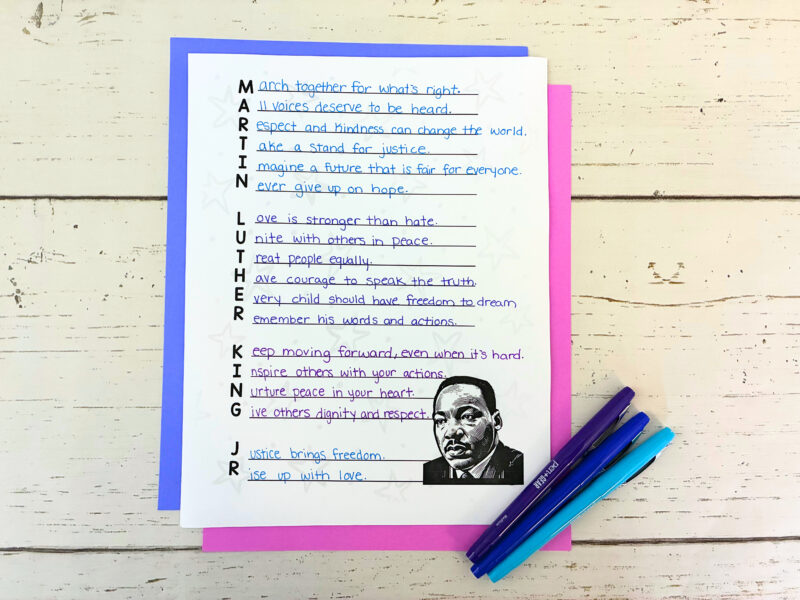 March together for what's right.
All voices deserve to be heard.
Respect and kindness can change the world.
Take a stand for justice.
Imagine a future that is fair for everyone.
Never give up on hope.
Love is stronger than hate.
Unite with others in peace.
Treat people equally.
Have courage to speak the truth.
Every child should have freedom to dream
Remember his words and actions.
Keep moving forward, even when it's hard.
Inspire others with your actions.
Nurture peace in your heart.
Give others dignity and respect.
Justice brings freedom.
Rise up with love.